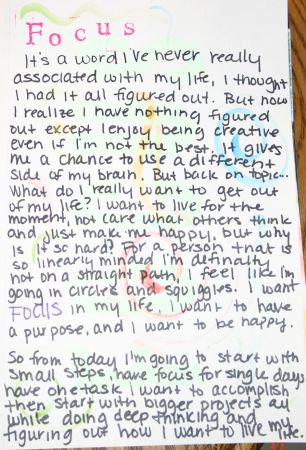 Focus
It's a word I've never really
associated with my life, I thought
I had it all figured out. But now
I realize I have nothing figured
out except I enjoy being creative
even if I'm not the best. It gives
me a chance to use a different
side of my brain. But back on topic...
What do I really want to get out
of my life? I want to live for the
moment, not care what others think
and just make me happy, but why
is it so hard? For a person that is
so linearly minded I'm definatly
not on a straight path, I feel like I'm
going in circles and squiggles. I want
FOCUS in my life, I want to have
a purpose, and I want to be happy.
So from today I'm going to start with
small steps, have focus for single days
have one task I want to accomplish
then start with bigger projects all
while doing deep thinking and
figuring out how I want to live my life.